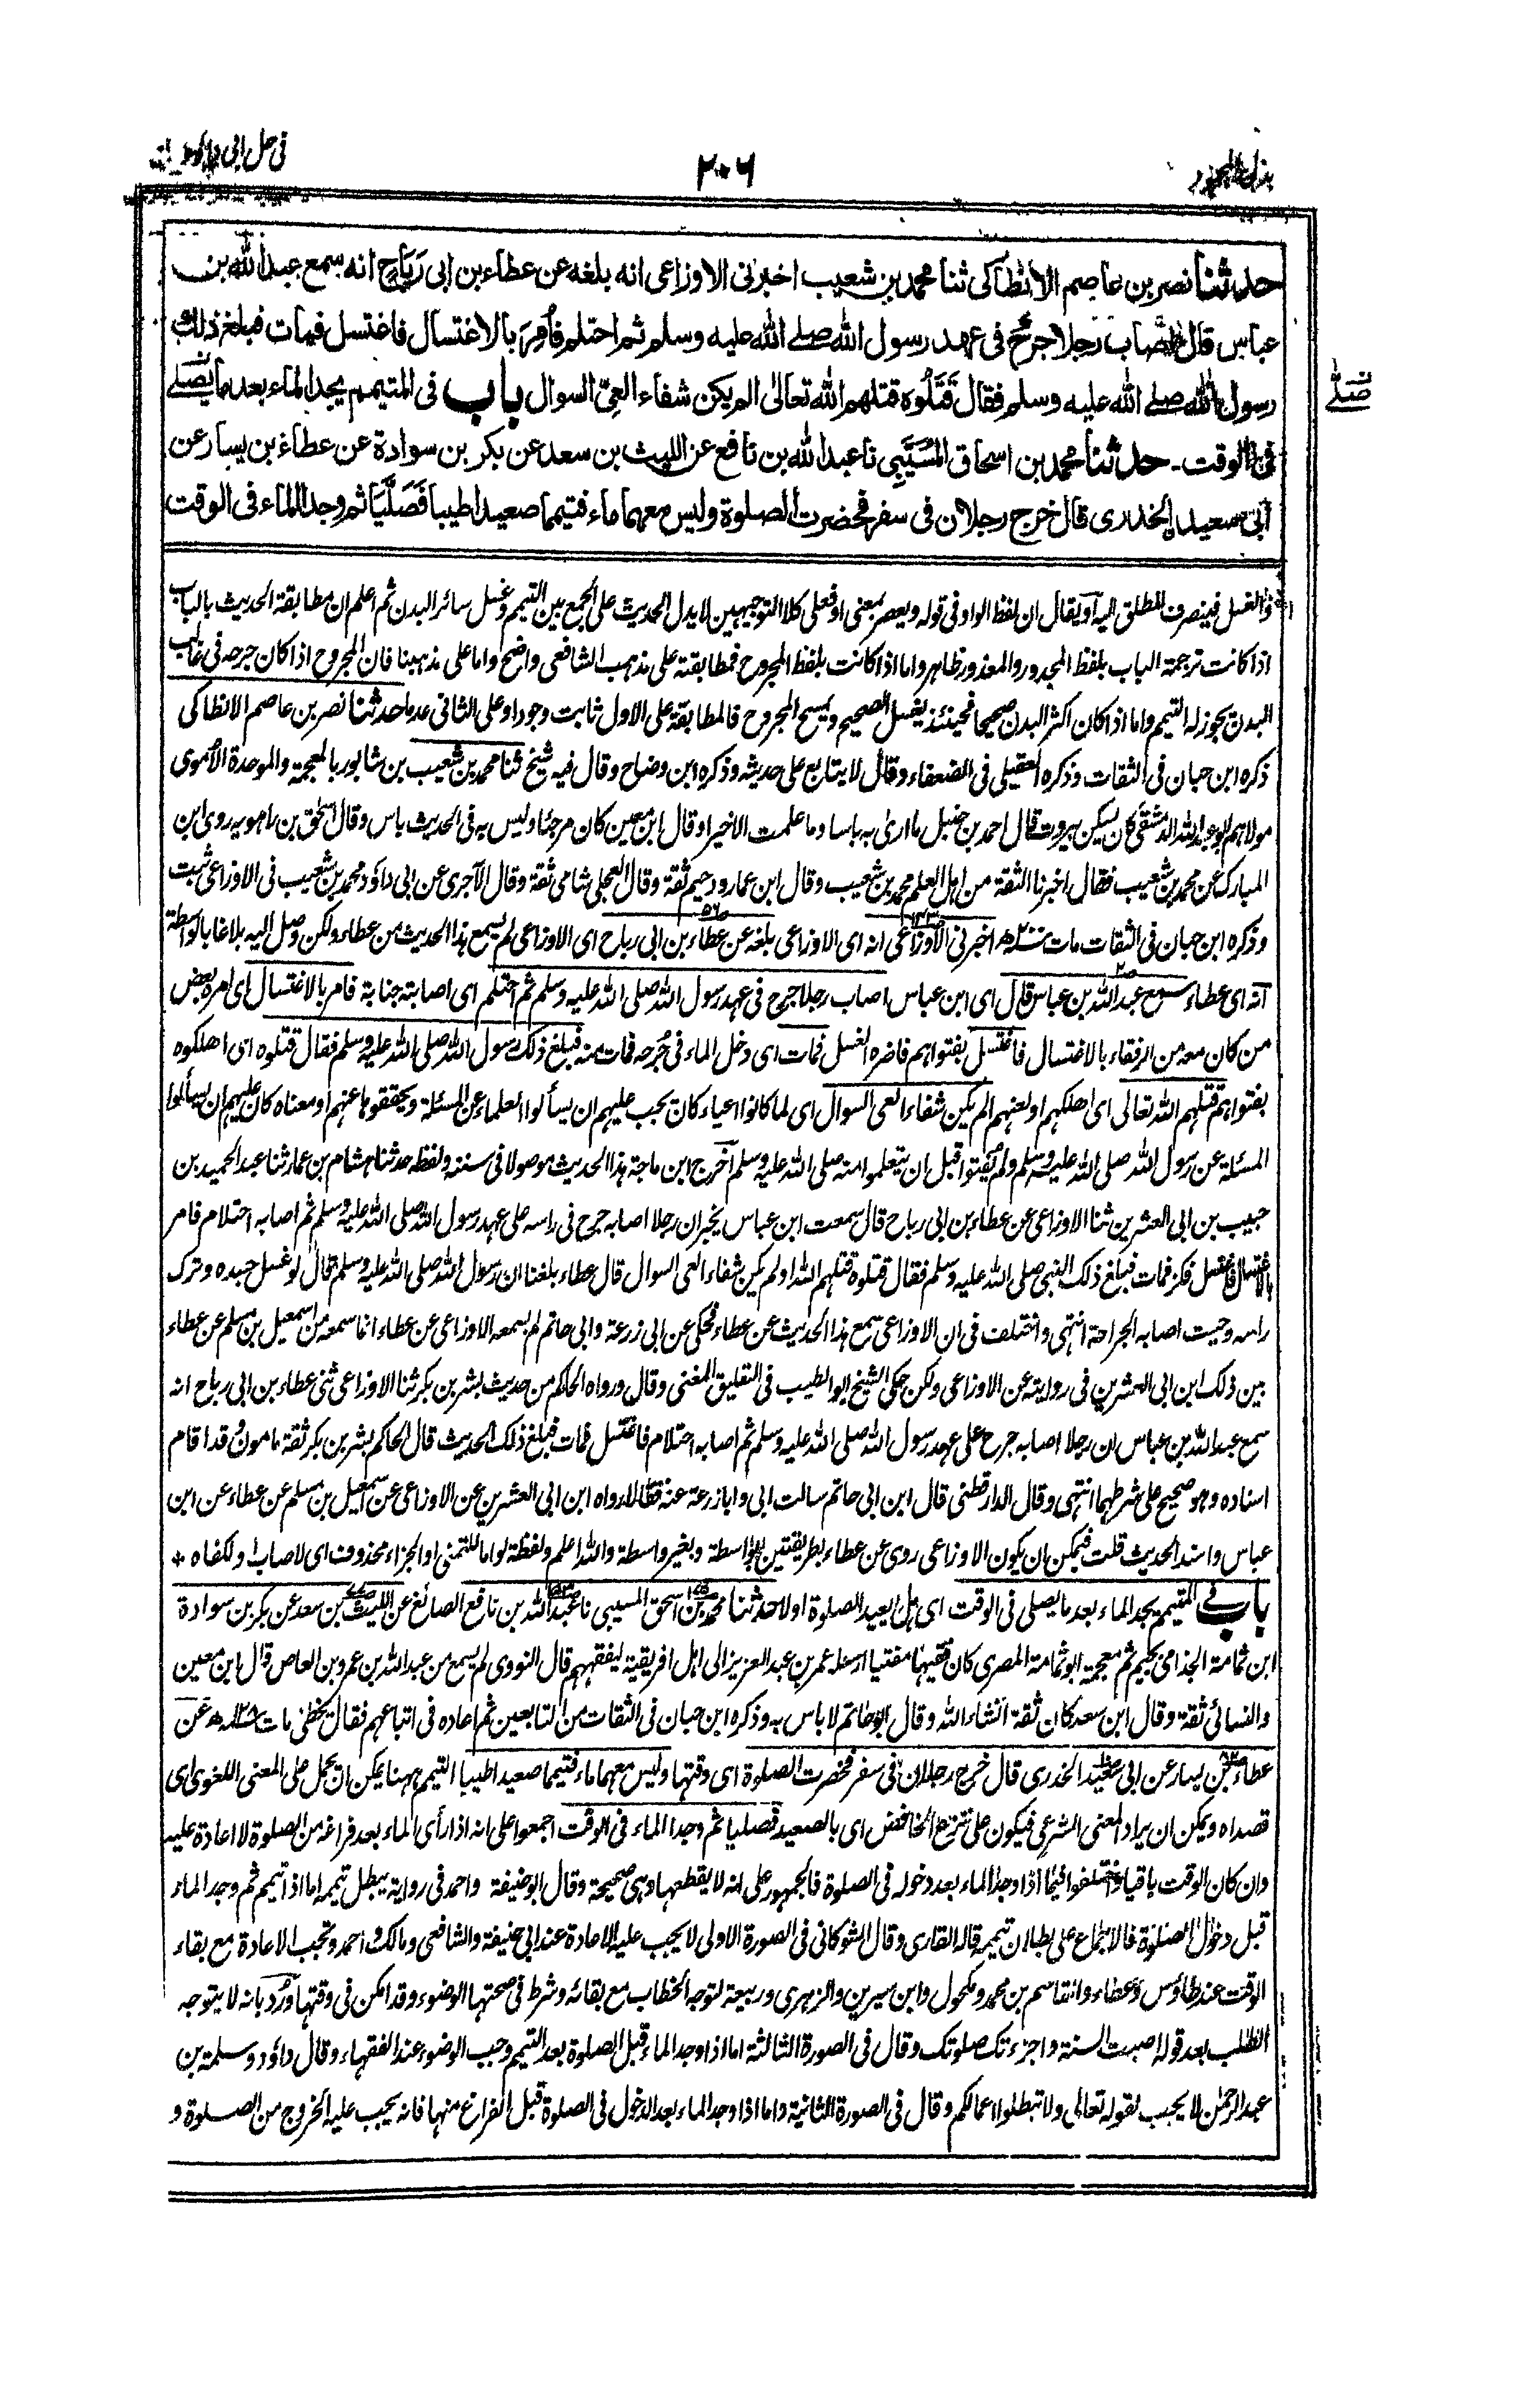 بذل المجهود
٢٠٦
فی حل ابی داؤد
حدثنا نصر بن عاصم الأنطاکی ثنا محمد بن شعیب اخبرنی الاوزاعی انه بلغه عن عطاء بن ابی رَبَاح انه سمع عبد الله بن
عباس قال اصاب رجلا جرحٌ فی عهد رسول الله صلے الله علیه وسلم ثم احتلم فأُمِرَ بالاغتسال فاغتسل فمات فبلغ ذلك
رسول الله صلے الله علیه وسلم فقال قَتَلُوه قتلهم الله تعالیٰ الم یکن شفاء العِیِّ السوال باب فی المتیمم یجد الماء بعد ما یصلے
صلّٰے
فی الوقت۔ حدثنا محمد بن اسحاق المُسَیَّبِی نا عبد الله بن نافع عن اللیث بن سعد عن بکر بن سوادة عن عطاء بن یسار عن
ابی سعید الخدری قال خرج رجلان فی سفر فحضرت الصلوة ولیس معهما ماء فتیمما صعیدا طیبا فَصَلَّیَا ثم وجدا الماء فی الوقت
والغسل فینصرف المطلق الیه او یقال ان لفظ الواو فی قوله ویعصر بمعنی او فعلی کلا التوجیهین لا یدل الحدیث علی الجمع بین التیمم وغسل سائر البدن ثم اعلم ان مطابقة الحدیث بالباب
اذا کانت ترجمة الباب بلفظ المجدور والمعذور ظاهر واما اذا کانت بلفظ المجروح فمطابقته علی مذهب الشافعی واضح واما علی مذهبنا فان المجروح اذا کان جرحه فی غالب
البدن یجوز له التیمم واما اذا کان اکثر البدن صحیحا فحینئذ یغسل الصحیح ویمسح المجروح فالمطابقة علی الاول ثابت وجودا وعلی الثانی عدما حدثنا نصر بن عاصم الانطاکی
ذکره ابن حبان فی الثقات وذکره العقیلی فی الضعفاء وقال لا یتابع علی حدیثه وذکره ابن وضاح وقال فیه شیخ ثنا محمد بن شعیب بن شابور بالمعجمة والموحدة الأموی
مولاهم ابو عبد الله الدمشقی کان یسکن بیروت قال احمد بن حنبل ما اریٰ به باسا وما علمت الا خیرا وقال ابن معین کان مرجئا ولیس به فی الحدیث باس وقال اسحٰق بن راهویه روی ابن
المبارک عن محمد بن شعیب فقال اخبرنا الثقة من اهل العلم محمد بن شعیب وقال ابن عمار ودحیم ثقة وقال العجلی شامی ثقة وقال الآجری عن ابی داؤد محمد بن شعیب فی الاوزاعی ثبت
وذکره ابن حبان فی الثقات مات سنة ٢٠٠ھ اخبرنی الاوزاعی انه ای الاوزاعی بلغه عن عطاء بن ابی رباح ای الاوزاعی لم یسمع هذا الحدیث من عطاء ولکن وصل الیه بلاغا بالواسطة
انه ای عطاء سمع عبد الله بن عباس قال ای ابن عباس اصاب رجلا جرح فی عهد رسول الله صلی الله علیه وسلم ثم احتلم ای اصابته جنابة فامر بالاغتسال ای امره بعض
من کان معه من الرفقاء بالاغتسال فاغتسل بفتواهم فاضره الغسل فمات ای دخل الماء فی جُرحه فمات منه فبلغ ذلک رسول الله صلی الله علیه وسلم فقال قتلوه ای اهلکوه
بفتواهم قتلهم الله تعالی ای اهلکهم او لعنهم الم یکن شفاء العی السوال ای لما کانوا اعیاء کان یجب علیهم ان یسألوا العلماء عن المسئلة ویحققوها عنهم او معناه کان علیهم ان یسألوا
المسئلة عن رسول الله صلی الله علیه وسلم ولم یفتوا قبل ان یتعلموا منه صلی الله علیه وسلم اخرج ابن ماجة هذا الحدیث موصولا فی سننه ولفظه حدثنا هشام بن عمار ثنا عبد الحمید بن
حبیب بن ابی العشرین ثنا الاوزاعی عن عطاء بن ابی رباح قال سمعت ابن عباس یخبر ان رجلا اصابه جرح فی راسه علی عهد رسول الله صلی الله علیه وسلم ثم اصابه احتلام فامر
بالاغتسال فاغتسل فکز فمات فبلغ ذلک النبی صلی الله علیه وسلم فقال قتلوه قتلهم الله اولم یکن شفاء العی السوال قال عطاء بلغنا ان رسول الله صلی الله علیه وسلم قال لو غسل جسده وترک
راسه وحیث اصابه الجراحة انتهی واختلف فی ان الاوزاعی سمع هذا الحدیث عن عطاء فحکی عن ابی زرعة وابی حاتم لم یسمعه الاوزاعی عن عطاء انما سمعه من اسمعیل بن مسلم عن عطاء
بین ذلک ابن ابی العشرین فی روایته عن الاوزاعی ولکن حکی الشیخ ابو الطیب فی التعلیق المغنی وقال ورواه الحاکم من حدیث بشر بن بکر ثنا الاوزاعی ثنی عطاء بن ابی رباح انه
سمع عبد الله بن عباس ان رجلا اصابه جرح علی عهد رسول الله صلی الله علیه وسلم ثم اصابه احتلام فاغتسل فمات فبلغ ذلک الحدیث قال الحاکم بشر بن بکر ثقة مامون وقد اقام
اسناده وهو صحیح علی شرطهما انتهی وقال الدارقطنی قال ابن ابی حاتم سالت ابی وابا زرعة عنه فقالا رواه ابن ابی العشرین عن الاوزاعی عن اسمعیل بن مسلم عن عطاء عن ابن
عباس واسند الحدیث قلت فیمکن ان یکون الاوزاعی روی عن عطاء بطریقتین بواسطة وبغیر واسطة والله اعلم ولفظة لو اما للتمنی او الجزاء محذوف ای لاصاب او لکفاه *
باب فی المتیمم یجد الماء بعد ما یصلی فی الوقت ای هل یعید الصلوة اولا حدثنا محمد بن اسحق المسیبی نا عبد الله بن نافع الصائغ عن اللیث بن سعد عن بکر بن سوادة
ابن ثمامة الجذامی بجیم ثم معجمة ابو ثمامة المصری کان فقیها مفتیا ارسله عمر بن عبد العزیز الی اهل افریقیة لیفقههم قال النووی لم یسمع من عبد الله بن عمرو بن العاص قال ابن معین
والنسائی ثقة وقال ابن سعد کان ثقة انشاء الله وقال ابو حاتم لا باس به وذکره ابن حبان فی الثقات من التابعین ثم اعاده فی اتباعهم فقال یخطئ مات سنة ١٢٨ھ عن
عطاء بن یسار عن ابی سعید الخدری قال خرج رجلان فی سفر فحضرت الصلوة ای وقتها ولیس معهما ماء فتیمما صعیدا طیبا التیمم ههنا یمکن ان یحمل علی المعنی اللغوی ای
قصداه ویمکن ان یراد المعنی الشرعی فیکون علی نزع الخافض ای بالصعید فصلیا ثم وجدا الماء فی الوقت اجمعوا علی انه اذا رأی الماء بعد فراغه من الصلوة لا اعادة علیه
وان کان الوقت باقیا واختلفوا فیما اذا وجد الماء بعد دخوله فی الصلوة فالجمهور علی انه لا یقطعها وهی صحیحة وقال ابو حنیفة واحمد فی روایة یبطل تیممه اما اذا تیمم ثم وجد الماء
قبل دخول الصلوة فالاجماع علی بطلان تیممه قاله القاری وقال الشوکانی فی الصورة الاولی لا یجب علیه الاعادة عند ابی حنیفة والشافعی ومالک واحمد وتجب الاعادة مع بقاء
الوقت عند طاؤس وعطاء والقاسم بن محمد ومکحول وابن سیرین والزهری وربیعة لتوجه الخطاب مع بقائه وشرط فی صحتها الوضوء وقد امکن فی وقتها ورُد بانه لا یتوجه
الطلب بعد قوله اصبت السنة واجزءتک صلوتک وقال فی الصورة الثالثة اما اذا وجد الماء قبل الصلوة بعد التیمم وجب الوضوء عند الفقهاء وقال داؤد وسلمة بن
عبد الرحمٰن لا یجب لقوله تعالی ولا تبطلوا اعمالکم وقال فی الصورة الثانیة واما اذا وجد الماء بعد الدخول فی الصلوة قبل الفراغ منها فانه یجب علیه الخروج من الصلوة و